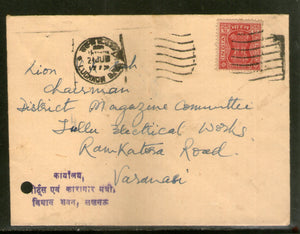 Lion
Chairman
District Magazine Committee
Tullu Electrical Works
Ramkatora Road.
Varanasi
कार्यालय,
स्पोर्ट्स एवं कारागार मंत्री,
विधान भवन, लखनऊ